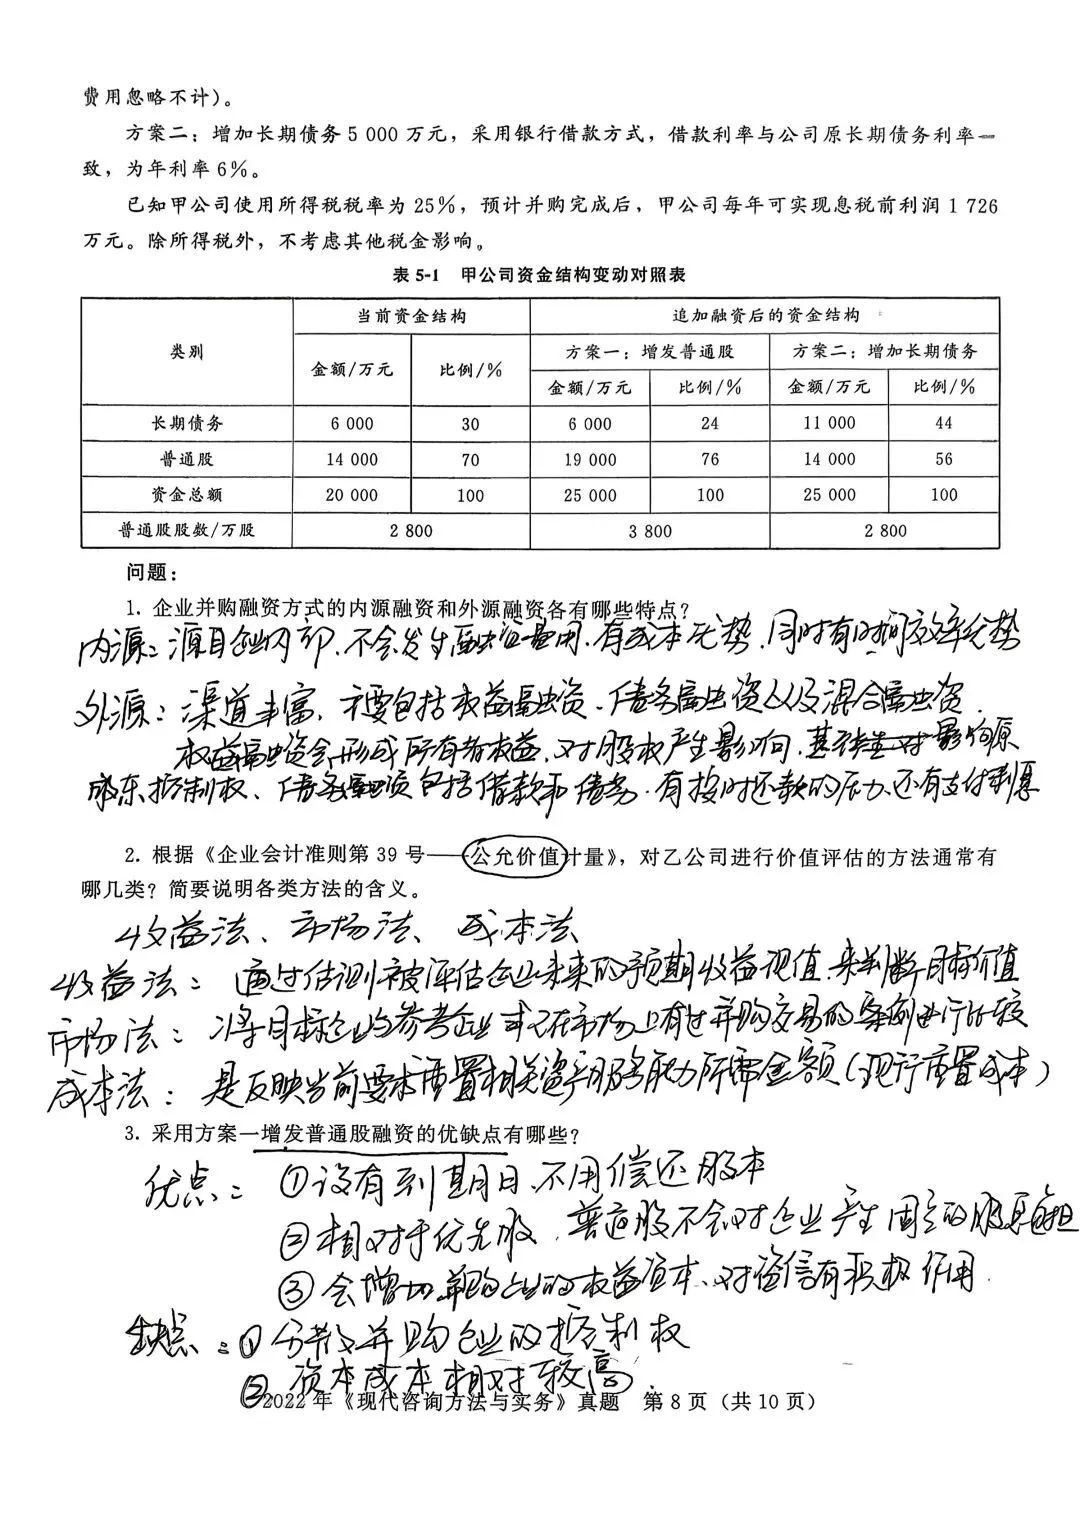 费用忽略不计)。
方案二：增加长期债务 5 000 万元，采用银行借款方式，借款利率与公司原长期债务利率一
致，为年利率 6%。
已知甲公司使用所得税税率为 25%，预计并购完成后，甲公司每年可实现息税前利润 1 726
万元。除所得税外，不考虑其他税金影响。
表 5-1 甲公司资金结构变动对照表
类别 当前资金结构 追加融资后的资金结构
方案一：增发普通股 方案二：增加长期债务
金额/万元 比例/% 金额/万元 比例/% 金额/万元 比例/%
长期债务 6 000 30 6 000 24 11 000 44
普通股 14 000 70 19 000 76 14 000 56
资金总额 20 000 100 25 000 100 25 000 100
普通股股数/万股 2 800 3 800 2 800
问题：
1. 企业并购融资方式的内源融资和外源融资各有哪些特点？
内源：源自企业内部、不会发生融资费用、有成本优势、同时有时间效率优势
外源：渠道丰富、主要包括权益融资、债务融资以及混合融资.
权益融资会形成所有者权益、对股权产生影响、影响原
股东控制权、债务融资包括借款和债务.有按时还款的压力、还有支付利息
2. 根据《企业会计准则第 39 号——公允价值计量》，对乙公司进行价值评估的方法通常有
哪几类？简要说明各类方法的含义。
收益法、市场法、成本法
收益法：通过估测被评估企业未来的预期收益现值、来判断目标价值
市场法：将目标企业与参考企业或已在市场上有过并购交易的案例进行比较
成本法：是反映当前要求重置相关资产服务能力所需金额(现行重置成本)
3. 采用方案一增发普通股融资的优缺点有哪些？
优点：①没有到期日、不用偿还股本
②相对于优先股、普通股不会对企业产生固定的股息负担
③会增加并购企业的权益资本、对资信有积极作用
缺点：①分散并购企业的控制权
②资本成本相对较高.
2022 年《现代咨询方法与实务》真题 第 8 页（共 10 页）